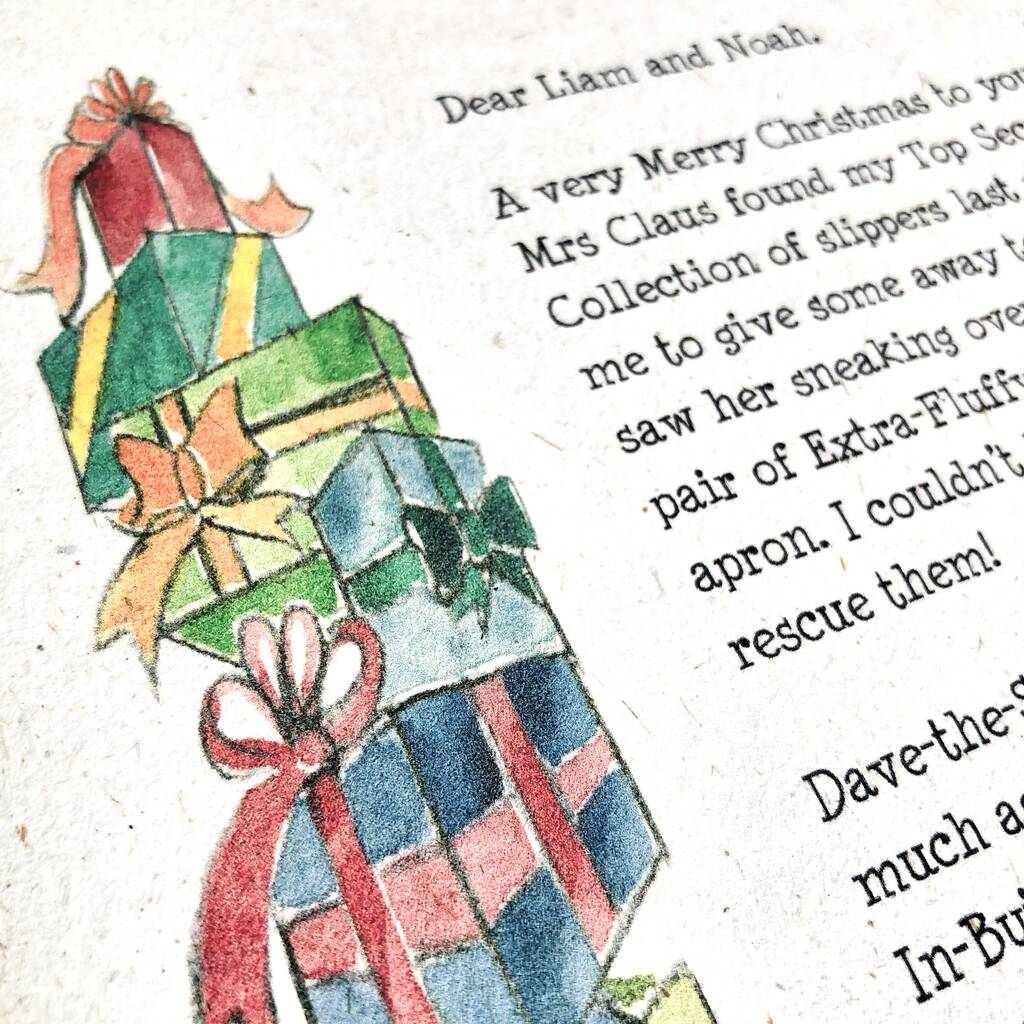 Dear Liam and Noah.
A very Merry Christmas to you
Mrs Claus found my Top Sec
Collection of slippers last
me to give some away t
saw her sneaking over
pair of Extra-Fluffy
apron. I couldn't
rescue them!
Dave-the-S
much as
In-Bui